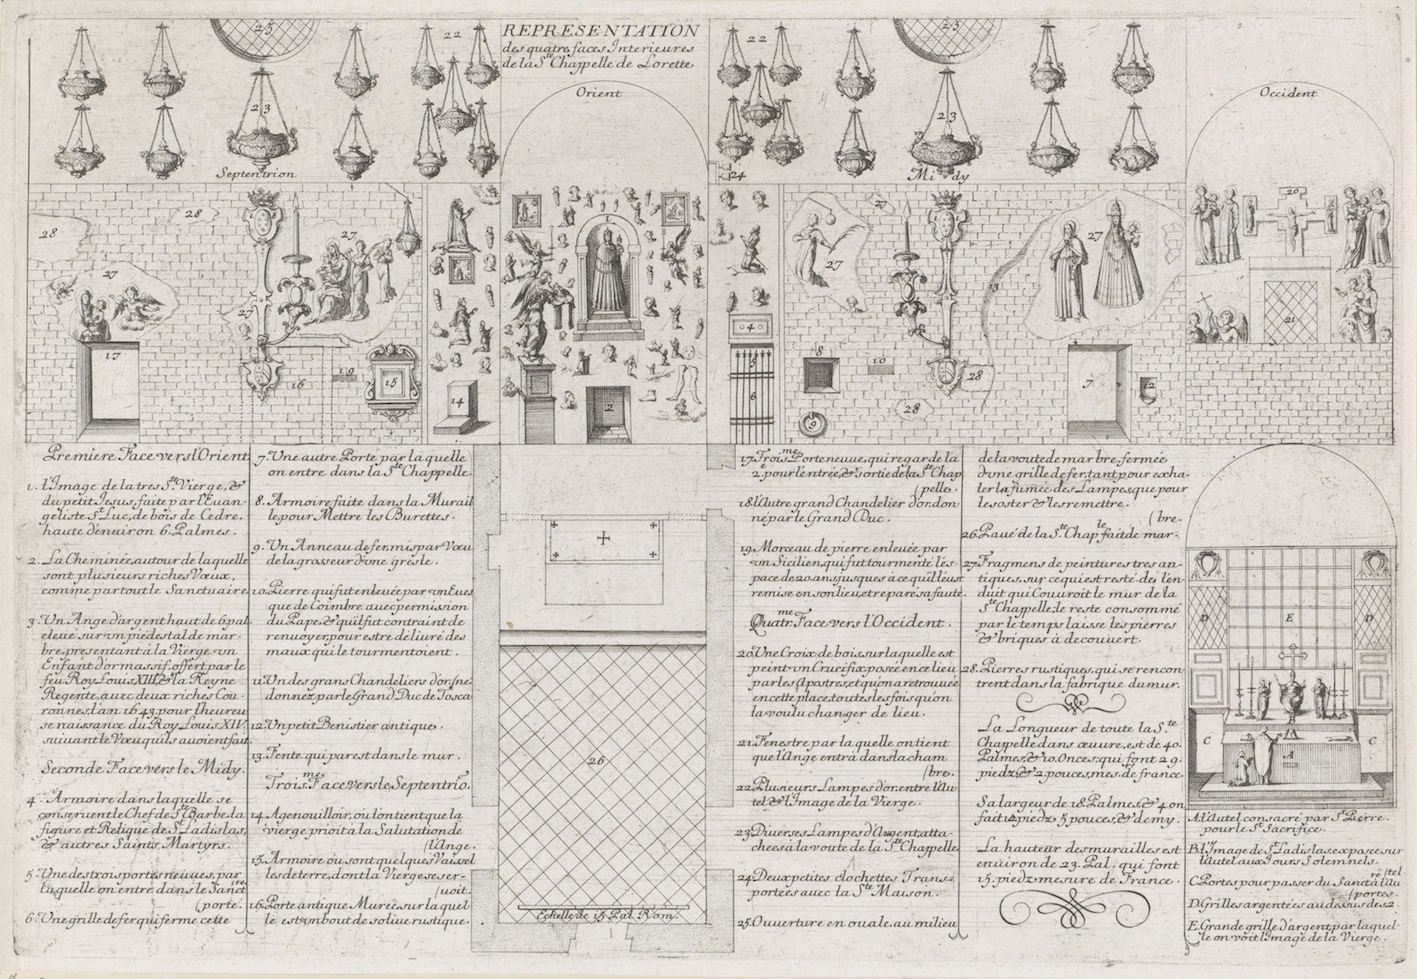 REPRESENTATION
des quatre faces Interieures
de la Ste Chappelle de Lorette
Orient
Occident
Septentrion
Midy
25
22
23
22
25
23
24
28
28
27
27
27
17
16
19
15
14
1
2
4
5
6
27
27
27
13
8
10
9
28
28
7
12
20
21
Premiere Face vers l'Orient
1. l'Image de la tres Ste Vierge, &
du petit Jesus, faite par l'Euan-
geliste St Luc, de bois de Cedre,
haute d'enuiron 6. Palmes.
2. La Cheminée, autour de laquelle
sont plusieurs riches Vœux,
comme par tout le Sanctuaire
3. Un Ange d'argent haut de 6 pal.
eleué sur un piedestal de mar-
bre, presentant à la Vierge un
Enfant d'or massif, offert par le
feu Roy Louis XIII, & la Reyne
Regente, auec deux riches Cou-
ronnes, l'an 1643, pour l'heureu
se naissance du Roy Louis XIV.
suiuant le Vœu qu'ils auoient fait.
Seconde Face vers le Midy.
4. Armoire dans laquelle se
conseruent le Chef de Ste Barbe, la
figure et Relique de St Ladislas,
& autres Saints Martyrs.
5. Une des trois portes neuues, par
laquelle on entre dans le Sanctre
(porte.
6. Une grille de fer qui ferme cette
7. Une autre Porte par laquelle
on entre dans la Ste Chappelle.
8. Armoire faite dans la Murail
le pour Mettre les Burettes.
9. Un Anneau de fer, mis par Vœu
de la grosseur d'une gresle.
10. Pierre qui fut enleuée par un Eues
que de Coimbre auec permission
du Pape, & qu'il fut contraint de
renuoyer, pour estre déliuré des
maux qui le tourmentoient.
11. Un des grans Chandeliers d'or, fne
donnéz par le Grand Duc de Tosca
12. Un petit Benistier antique.
13. Fente qui parest dans le mur.
Troisme Face vers le Septentrio.
14. Agenouilloir, où l'on tient que la
vierge prioit à la Salutation de
(l'Ange.
15. Armoire où sont quelques Vaissel
les de terre, dont la Vierge se ser-
(uoit.
16. Porte antique Murée, sur laquel
le est un bout de soliue rustique.
26
Echelle de 15 Pal. Rom.
17. Troisme Porte neuue, qui regarde la
2e pour l'entrée, & sortie de la Ste Chap
(pelle.
18. l'Autre grand Chandelier d'or, don
né par le Grand Duc.
19. Morceau de pierre enleuée par
un Sicilien, qui fut tourmenté l'es
pace de 20 ans, jusques à ce qu'il l'eust
remise en son lieu, et reparé sa faute.
Quatrme Face vers l'Occident.
20. Une Croix de bois, sur laquelle est
peint un Crucifix, posée en ce lieu
par les Apostres, et qu'on a retrouuée
en cette place, toutes les fois qu'on
l'a voulu changer de lieu.
21. Fenestre par laquelle on tient
que l'Ange entra dans la cham
(bre.
22. Plusieurs Lampes d'or, entre l'Au
tel, & l'Image de la Vierge.
23. Diuerses Lampes d'Argent atta-
chées à la voute de la Ste Chappelle
24. Deux petites clochettes Trans-
portées auec la Ste Maison.
25. Ouuerture en ouale, au milieu
de la voute de marbre, fermée
d'une grille de fer, tant pour exha-
ler la fumée des Lampes, que pour
les oster & les remettre.
(bre.
26. Paué de la Ste Chaplle fait de mar-
27. Fragmens de peintures tres an-
tiques, sur ce qui est resté de l'en-
duit qui Couuroit le mur de la
Ste Chappelle, le reste consommé
par le temps laisse les pierres
& briques à decouuert.
28. Pierres rustiques, qui se rencon-
trent dans la fabrique du mur.
La Longueur de toute la Ste
Chappelle dans œuure, est de 40.
Palmes, & 10. Onces, qui font 29.
piedz, & 2. pouces, mes. de france.
Sa largeur de 18. Palmes, & 4 on
fait 12 piedz 5 pouces, & demy.
La hauteur des murailles est
enuiron de 23. Pal. qui font
15. piedz mesure de France.
D
E
D
C
A
C
A. l'Autel consacré par St Pierre.
pour le St Sacrifice.
B. l'Image de St Ladislas, exposée sur
l'autel aux Jours Solemnels.
re (tel
C. Portes pour passer du Sanct à l'Au
(portes.
D. Grilles argentées au dessus des 2.
E. Grande grille d'argent, par laquel-
le on voit l'Image de la Vierge.